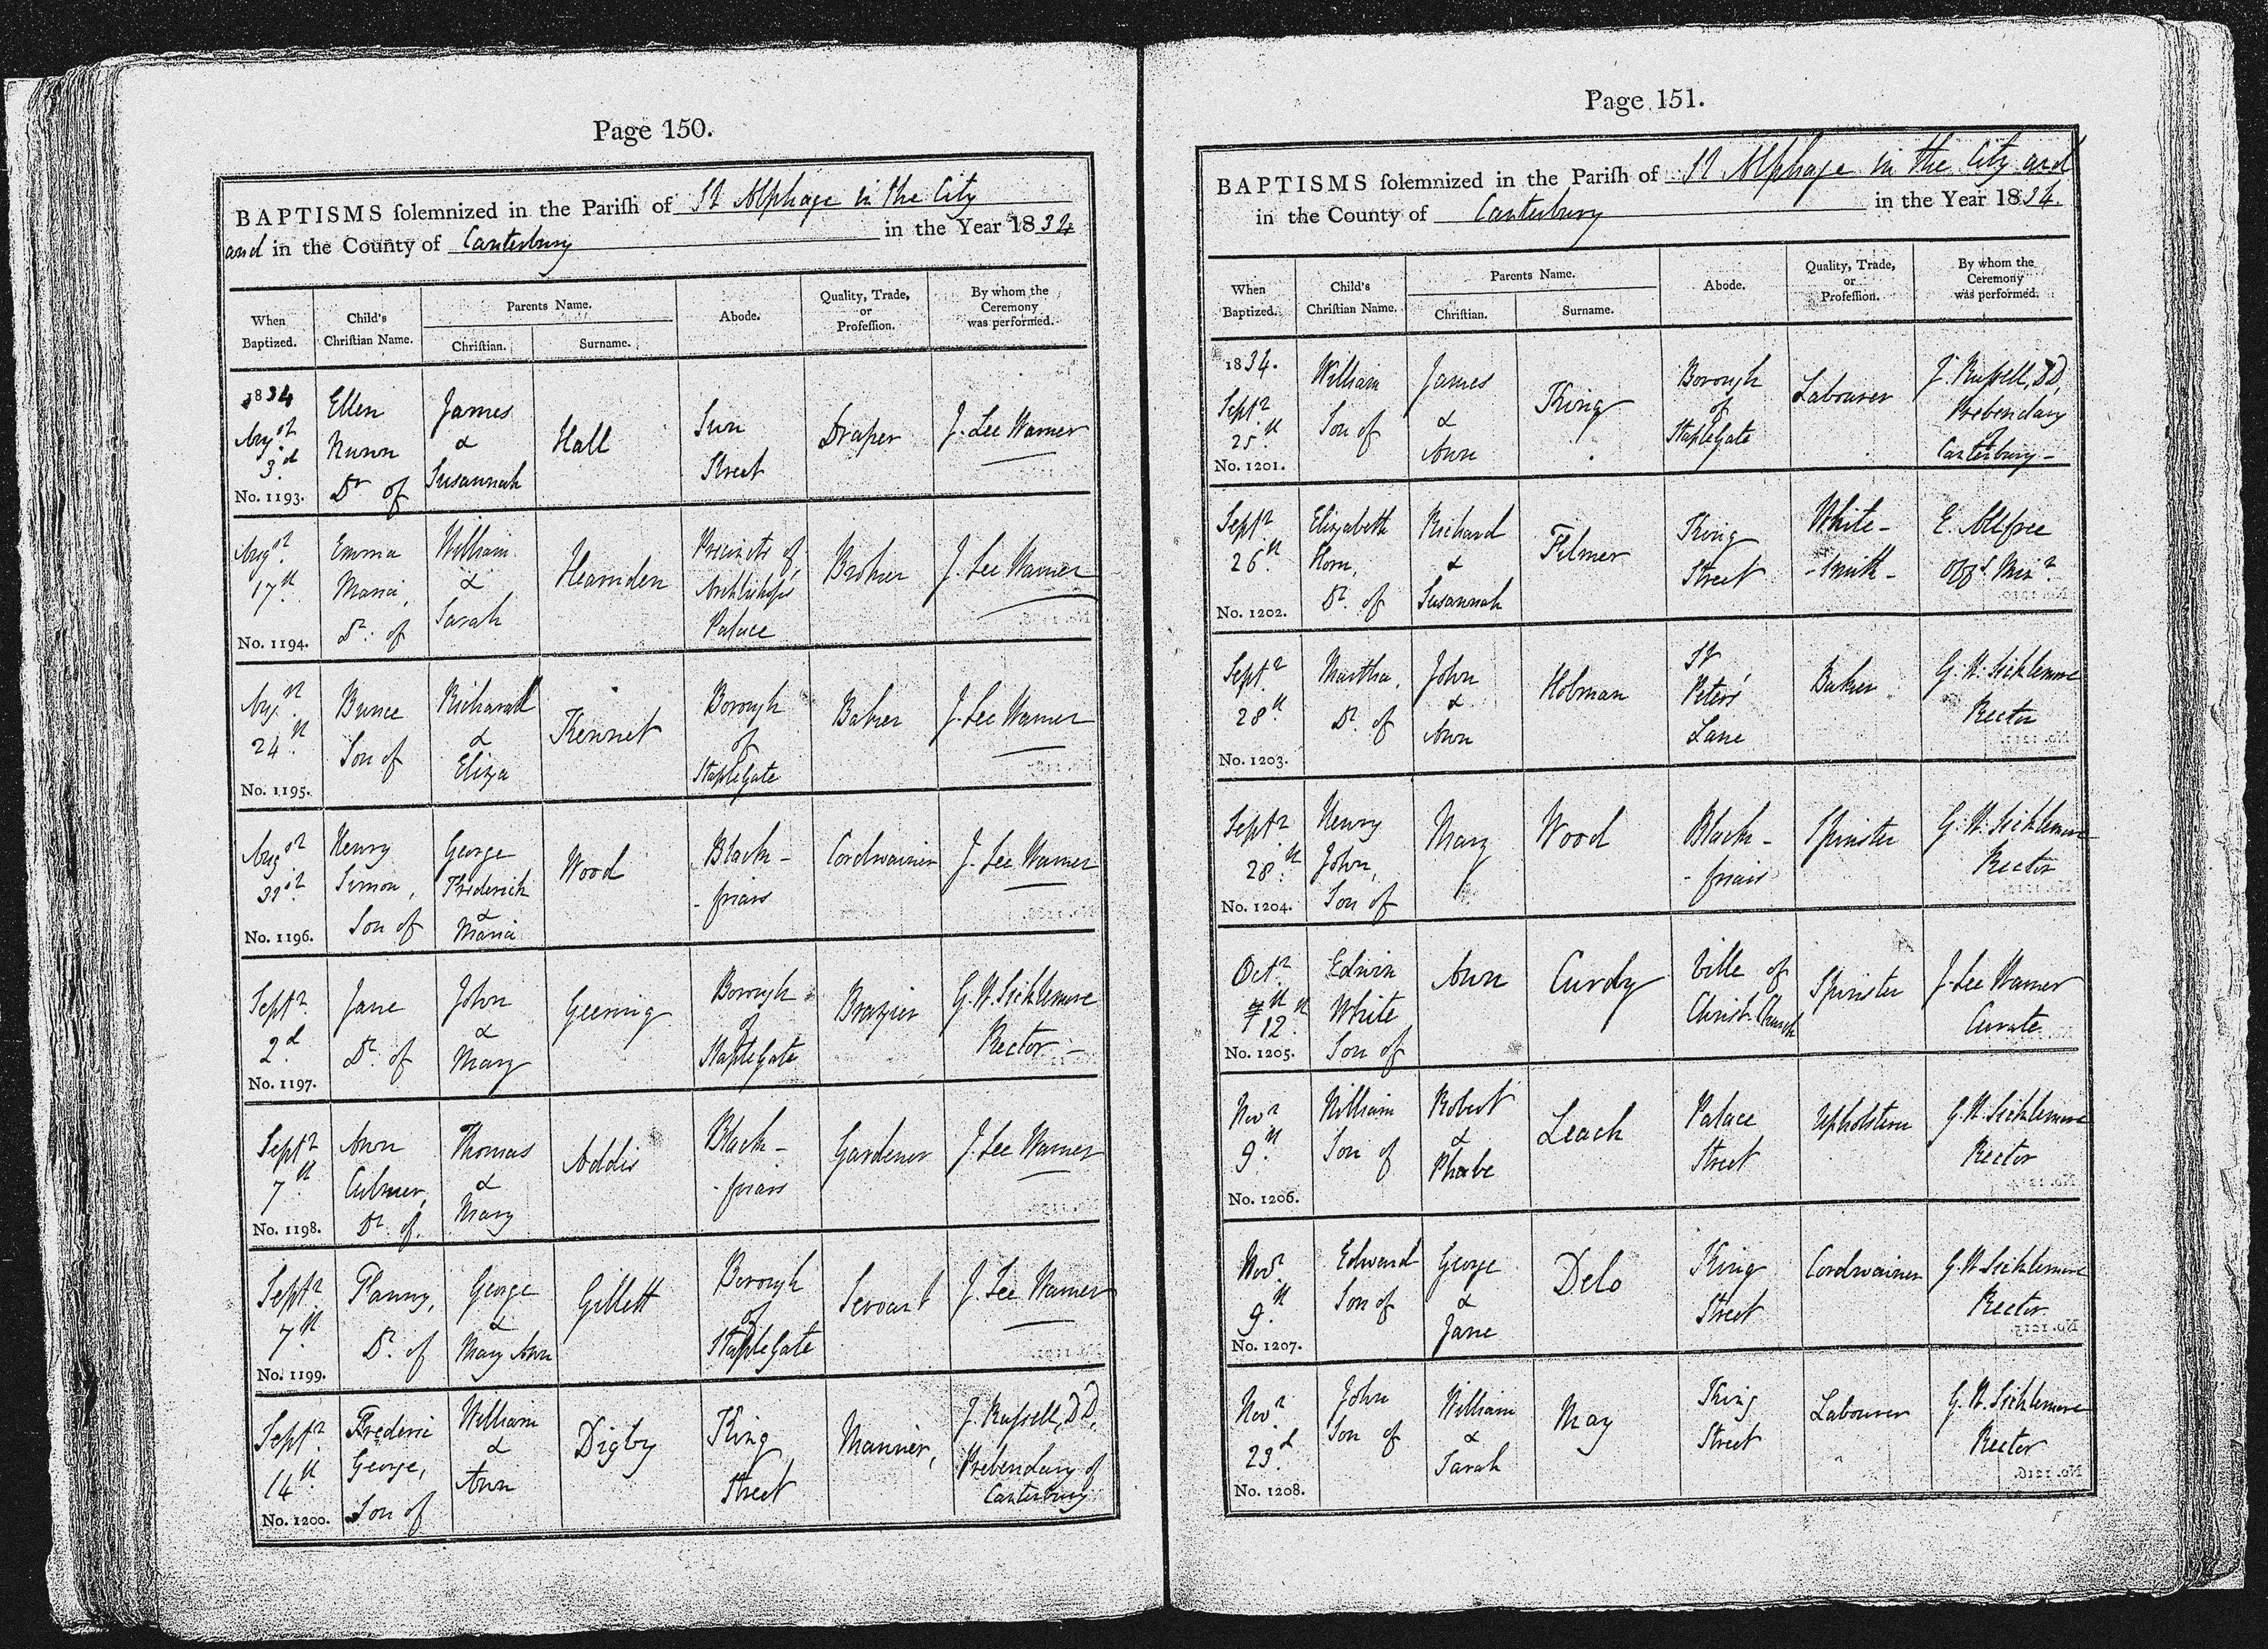 Page 150.
BAPTISMS solemnized in the Parish of St Alphage in the City
and in the County of Canterbury in the Year 1834
When Baptized. Child's Christian Name. Parents Name. Christian. Surname. Abode. Quality, Trade, or Profession. By whom the Ceremony was performed.
1834 Augst 3d No. 1193. Ellen Nunn Dr of James & Susannah Hall Sun Street Draper J. Lee Warner
Augst 17th No. 1194. Emma Maria, Dr of William & Sarah Hearnden Precincts of Archbishops Palace J. Lee Warner
Augst 24th No. 1195. Bunce Son of Richard & Eliza Kennet Borough of Staplegate Baker J. Lee Warner
Augst No. 1196. Henry Simon, Son of George Frederick & Maria Wood Black- -friars Cordwainer J. Lee Warner
Septr 2d No. 1197. Jane Dr of John & Mary Geering Borough of Staplegate Brazier G. W. Sicklemore Rector
Septr 7th No. 1198. Ann Culmer, Dr of Thomas & Mary Addis Black- -friars Gardener J. Lee Warner
Septr 7th No. 1199. Fanny, Dr of George & Mary Ann Gillett Borough of Staplegate Servant J. Lee Warner
Septr 14th No. 1200. Frederic George, Son of William & Ann Digby King Street Mariner, J. Russell, DD, Prebendary of Canterbury
Page 151.
BAPTISMS solemnized in the Parish of St Alphage in the City and
in the County of Canterbury in the Year 1834.
When Baptized. Child's Christian Name. Parents Name. Christian. Surname. Abode. Quality, Trade, or Profession. By whom the Ceremony was performed.
1834. Septr 25th No. 1201. William Son of James & Ann King Borough of Staplegate Labourer J. Russell, DD, Prebendary of Canterbury
Septr 26th No. 1202. Elizabeth Horn, Dr of Richard & Susannah Filmer King Street White- -Smith- E. Allfree Offg Minr
Septr 28th No. 1203. Martha, Dr of John & Ann Holman St Peters' Lane Baker G. W. Sicklemore Rector
Septr 28th No. 1204. Henry John, Son of Mary Wood Black- -friars Spinster G. W. Sicklemore Rector
Octr 12th No. 1205. Edwin White Son of Ann Curdy Ville of Christ Church Spinster J. Lee Warner Curate
Novr 9th No. 1206. William Son of Robert & Phœbe Leach Palace Street Upholsterer G. W. Sicklemore Rector
Novr 9th No. 1207. Edward Son of George & Jane Delo King Street Cordwainer G. W. Sicklemore Rector
Novr 23d No. 1208. John Son of William & Sarah May King Street Labourer G. W. Sicklemore Rector